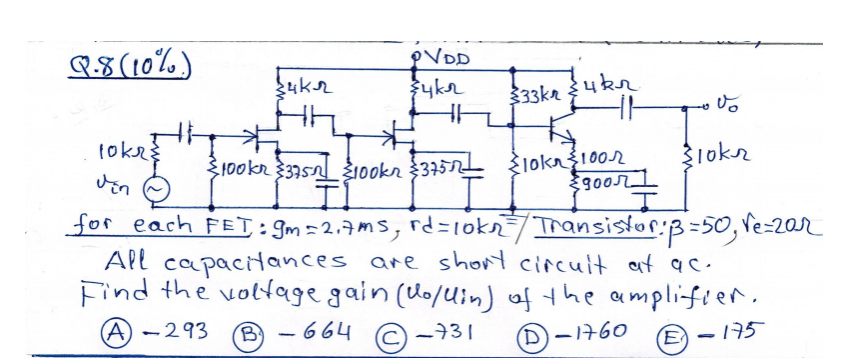 Q.8 (10%)
VDD
4kΩ
4kΩ
33kΩ
4kΩ
vo
10kΩ
100kΩ
375Ω
100kΩ
375Ω
10kΩ
100Ω
900Ω
10kΩ
vin
for each FET: gm=2.7ms, rd=10kΩ / Transistor: β=50, re=20Ω
All capacitances are short circuit at ac.
Find the voltage gain (vo/vin) of the amplifier.
(A) -293 (B) -664 (C) -731 (D) -1760 (E) -175